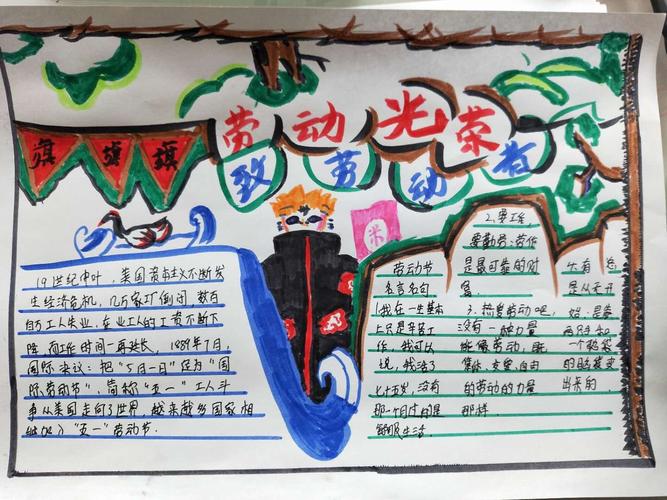 劳动光荣
致劳动者
旗 旗 旗
米
19世纪中叶，美国资本主义不断发
生经济危机，几万家工厂倒闭，数百
万工人失业，在业工人的工资不断下
降，而工作时间一再延长，1889年7月，
国际决议：把"5月一日"定为"国
际劳动节"，简称"五一"工人斗
争从美国走向了世界，越来越多国家相
继加入"五一"劳动节．
劳动节
名言名句
1.我在一生基本
上只是辛苦工
作，我可以
说，我活了
七十五岁，没有
那一个月过的是
舒服生活
2.要工作，
要勤劳：劳作
是最可靠的财
富
3.热爱劳动吧，
没有一种力量
能像劳动，既
集体、友爱、自由
的劳动的力量
那样
是从天开
始：是要
一个
的
出来的